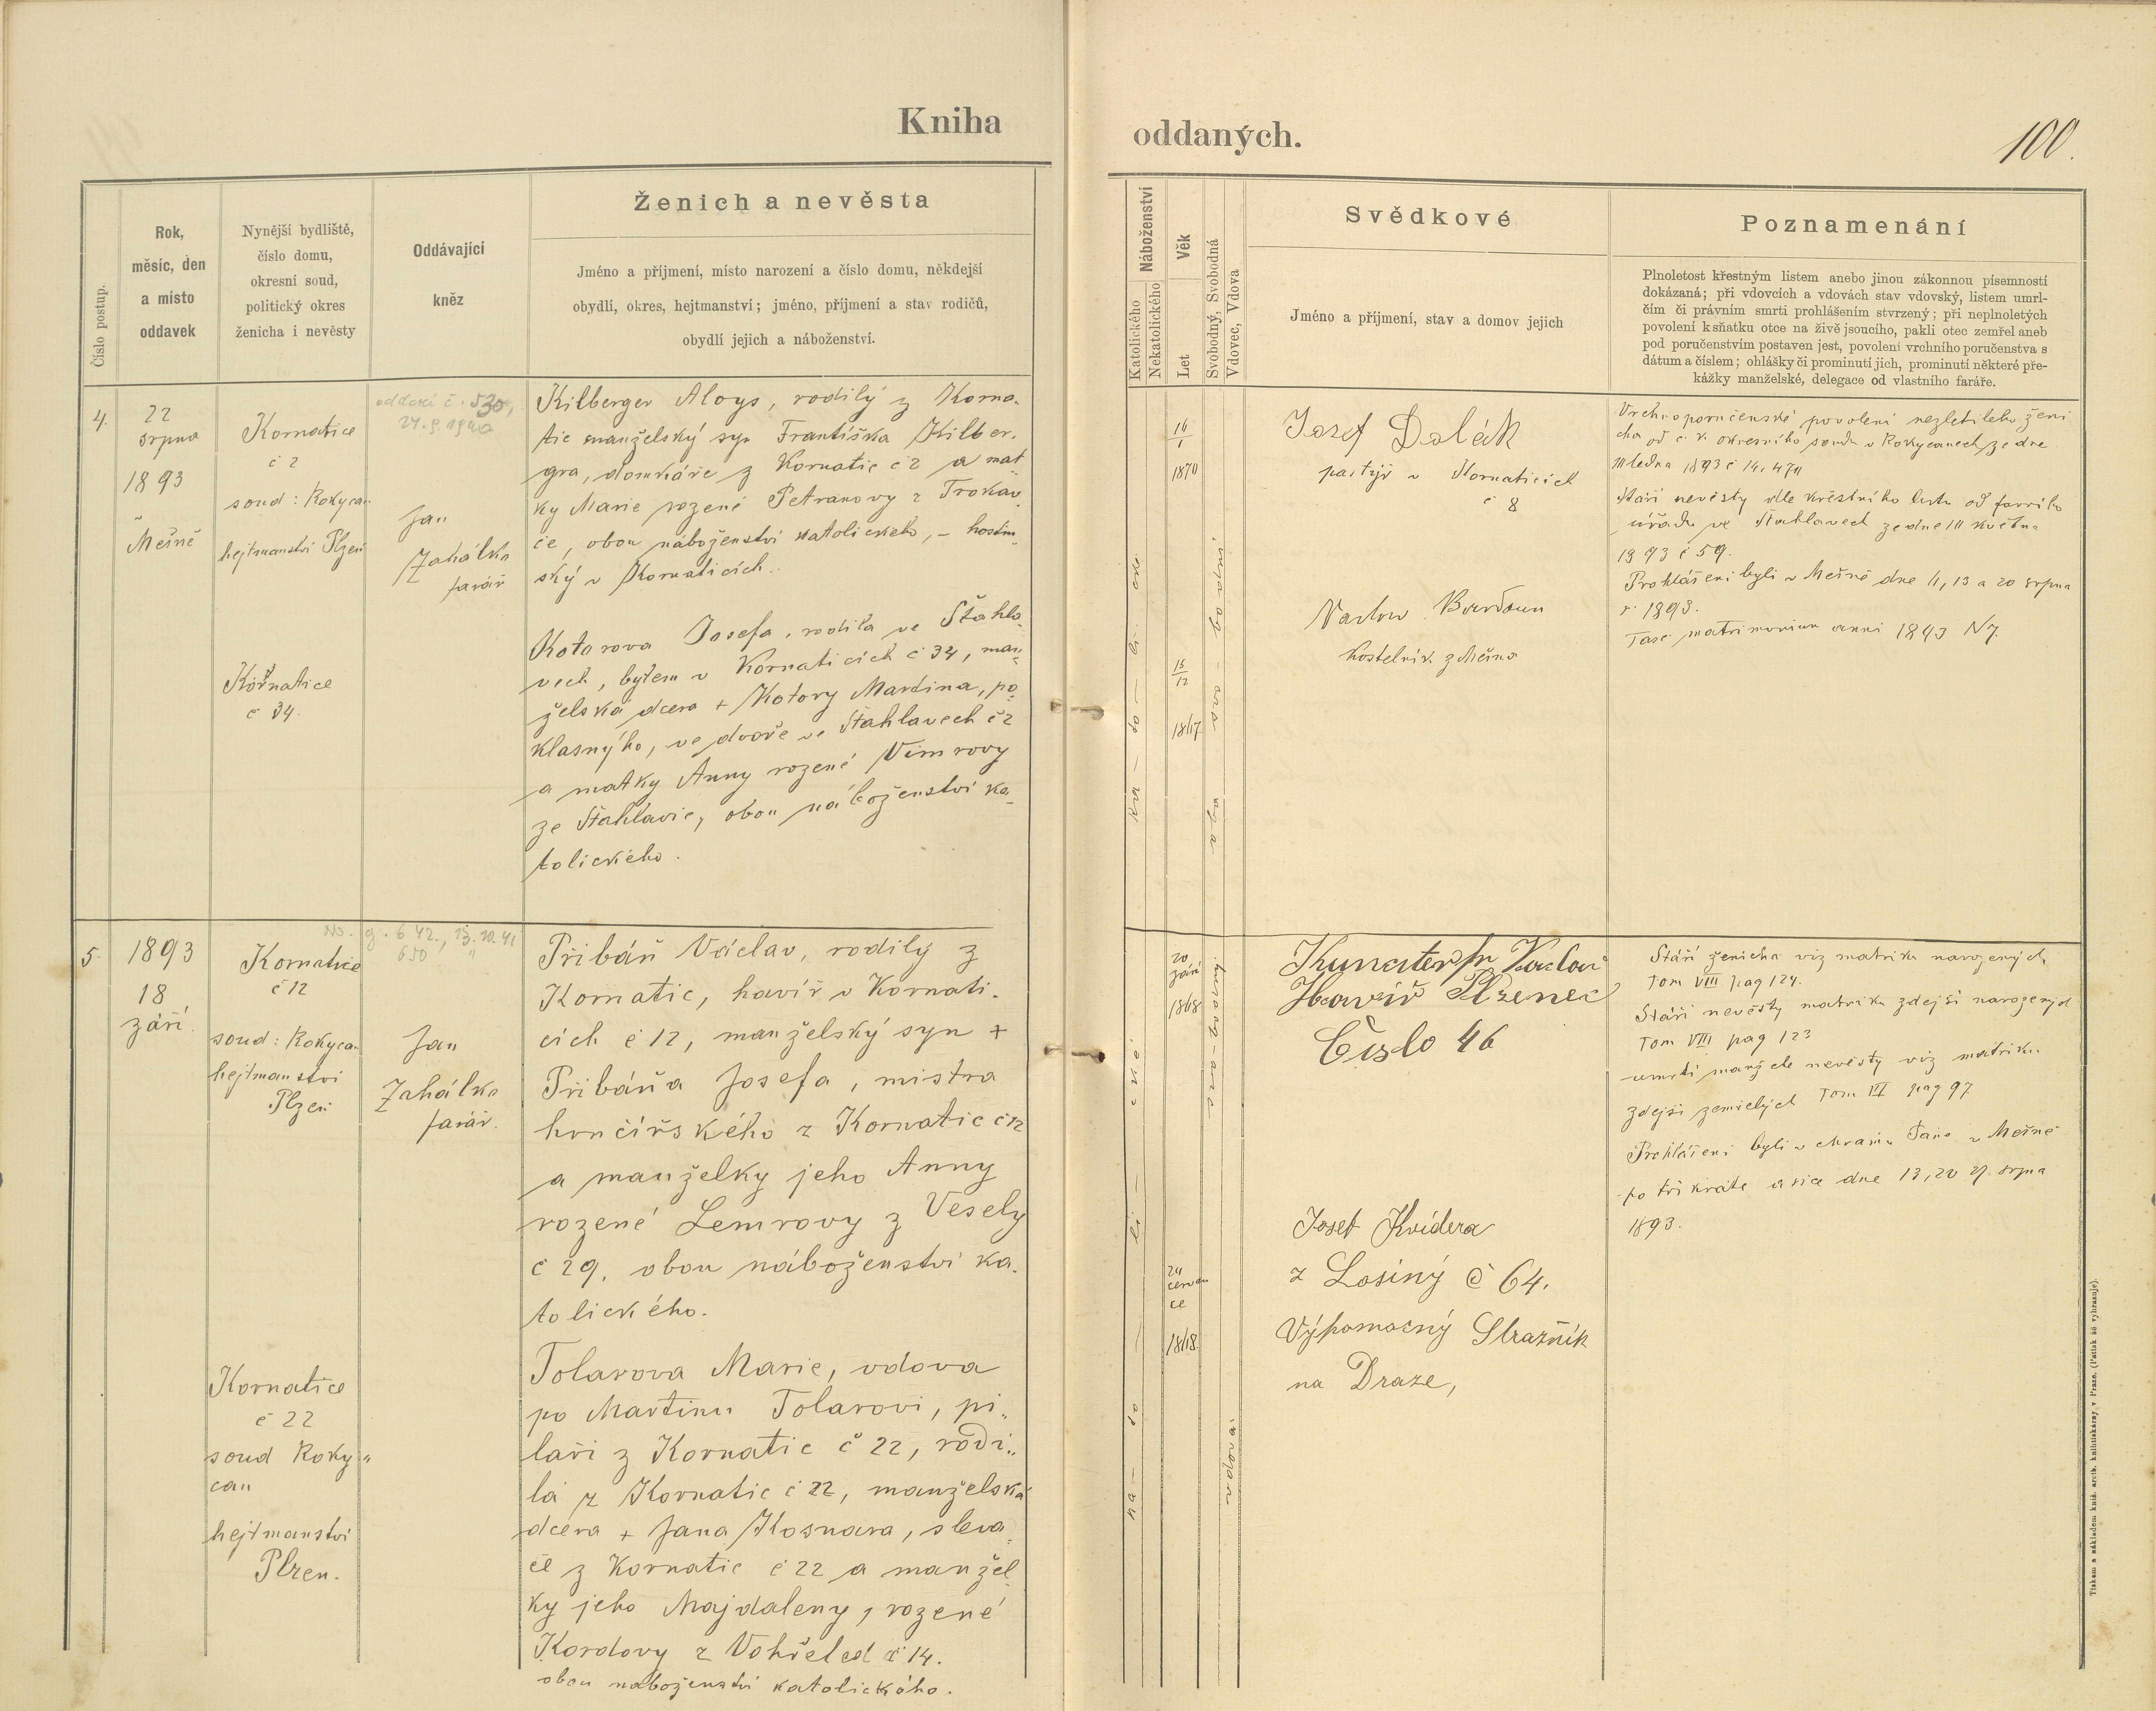 Kniha
oddaných.
100.
Číslo postup.
Rok,
měsíc, den
a místo
oddavek
Nynější bydliště,
číslo domu,
okresní soud,
politický okres
ženicha i nevěsty
Oddávající
kněz
Ženich a nevěsta
Jméno a příjmení, místo narození a číslo domu, někdejší
obydlí, okres, hejtmanství; jméno, příjmení a stav rodičů,
obydlí jejich a náboženství.
Náboženství
Katolického
Nekatolického
Věk
Let
Svobodný, Svobodná
Vdovec, Vdova
Svědkové
Jméno a příjmení, stav a domov jejich
Poznamenání
Plnoletost křestným listem anebo jinou zákonnou písemností
dokázaná; při vdovcích a vdovách stav vdovský, listem umrl-
čím či právním smrti prohlášením stvrzený; při neplnoletých
povolení k sňatku otce na živě jsoucího, pakli otec zemřel aneb
pod poručenstvím postaven jest, povolení vrchního poručenstva s
dátum a číslem; ohlášky či prominutí jich, prominutí některé pře-
kážky manželské, delegace od vlastního faráře.
4.
22
srpna
1893
Mešně
Kornatice
č 2
soud: Rokycan
hejtmanství Plzeň
Kornatice
č 34.
Jan
Zahálka
farář
Kilberger Aloys, rodilý z Korna-
tic manželský syn Františka Kilber-
gra, domkáře z Kornatic č 2 a mat-
ky Marie rozené Petranovy z Trokav-
če, obou náboženství katolického, – hostin-
ský v Kornaticích.
Kotorova Josefa, rodilá ve Šťahla-
vech, bytem v Kornaticích č 34, man-
želská dcera + Kotory Martina, po-
klasnýho, ve dvoře ve Šťahlavech č 2
a matky Anny rozené Vimrovy
ze Šťahlavic, obou náboženství ka-
tolického.
16
1
1870
15
12
Josef Dolák
pastýř v Kornaticích
č 8
kostelník z Mešna
Vrchnoporučenské povolení nezletilého ženi
cha od c. k. okresního soudu v Rokycanech ze dne
Stáří nevěsty dle křestního listu od farního
úřadu ve Šťahlavech ze dne května
1893 č 59.
Prohlášeni byli v Mešně dne 11, 13 a 20 srpna
r. 1893.
5.
1893
18
září.
Kornatice
č 12
soud: Rokycan
hejtmanství
Plzeň
Kornatice
č 22
soud Roky-
can
hejtmanství
Plzen.
Jan
Zahálka
farář.
Přibáň Václav, rodilý z
Kornatic, havíř v Kornati-
cích č 12, manželský syn +
Přibáňa Josefa, mistra
hrnčířského z Kornatic č 12
a manželky jeho Anny
rozené Lemrovy z Vesely
č 29, obou náboženství ka-
tolického.
Tolarova Marie, vdova
po Martinu Tolarovi, pi-
laři z Kornatic č 22, rodi-
lá z Kornatic č 22, manželská
dcera + Jana Kosnara, sleva-
če z Kornatic č 22 a manžel-
ky jeho Majdaleny, rozené
Kordovy z Vohřeled č 14.
obou náboženství katolického.
20
září
24
červen
ce
vdova
Havíř Plzenec
Číslo 46
Josef Kvídera
z Losiný č 64.
Výpomocný Stražník
na Draze,
Stáří ženicha viz matriku narozených
Tom VIII pag 124.
Stáří nevěsty matriku zdejší narozených
Tom VIII pag 123
úmrtí manžela nevěsty viz matriku
zdejší zemřelých Tom pag 97
Prohlášeni byli v chrámu Páně v Mešně
po třikráte a sice dne 13, 20 27 srpna
1893.
Tiskem a nákladem kníž. arcib. knihtiskárny v Praze. (Patisk se vyhrazuje).